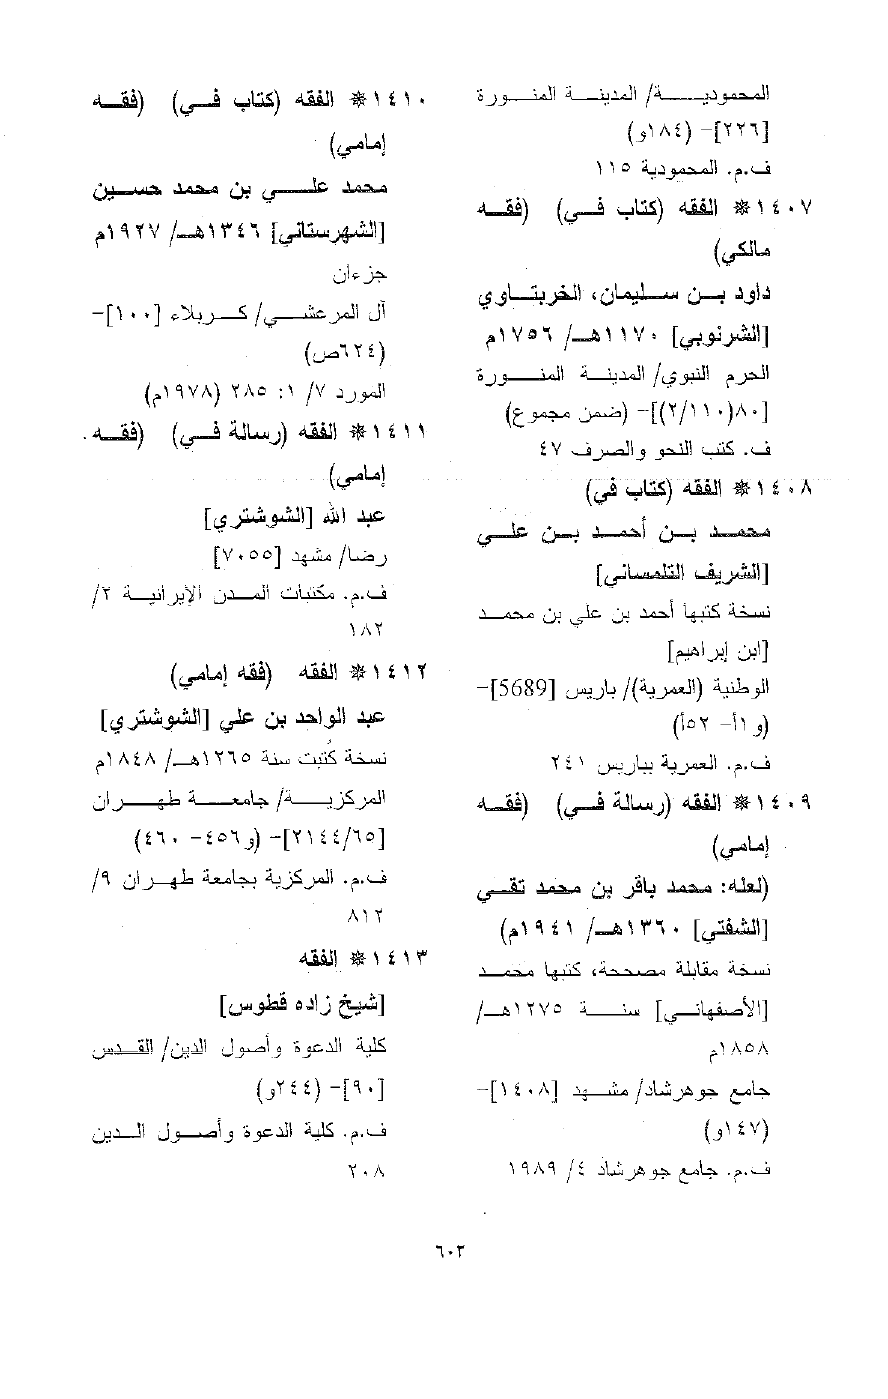 المحمودية/ المدينة المنورة
[٢٢٦]- (١٨٤و)
ف.م. المحمودية ١١٥
١٤٠٧* الفقه (كتاب في) (فقه
مالكي)
داود بن سليمان، الخربتاوي
[الشرنوبي] ١١٧٠هـ/ ١٧٥٦م
الحرم النبوي/ المدينة المنورة
[٨٠(٢/١١٠)]- (ضمن مجموع)
ف. كتب النحو والصرف ٤٧
١٤٠٨* الفقه (كتاب في)
محمد بن أحمد بن علي
[الشريف التلمساني]
نسخة كتبها أحمد بن علي بن محمد
[ابن إبراهيم]
الوطنية (العمرية)/ باريس [5689]-
(و١أ- ٥٢أ)
ف.م. العمرية بباريس ٢٤١
١٤٠٩* الفقه (رسالة في) (فقه
إمامي)
(لعله: محمد باقر بن محمد تقي
[الشفتي] ١٣٦٠هـ/ ١٩٤١م)
نسخة مقابلة مصححة، كتبها محمد
[الأصفهاني] سنة ١٢٧٥هـ/
١٨٥٨م
جامع جوهرشاد/ مشهد [١٤٠٨]-
(١٤٧و)
ف.م. جامع جوهرشاد ٤/ ١٩٨٩
١٤١٠* الفقه (كتاب في) (فقه
إمامي)
محمد علي بن محمد حسين
[الشهرستاني] ١٣٤٦هـ/ ١٩٢٧م
جزءان
آل المرعشي/ كربلاء [١٠٠]-
(٦٢٤ص)
المورد ٧/ ١: ٢٨٥ (١٩٧٨م)
١٤١١* الفقه (رسالة في) (فقه
إمامي)
عبد الله [الشوشتري]
رضا/ مشهد [٧٠٥٥]
ف.م. مكتبات المدن الإيرانية ٢/
١٨٢
١٤١٢* الفقه (فقه إمامي)
عبد الواحد بن علي [الشوشتري]
نسخة كُتبت سنة ١٢٦٥هـ/ ١٨٤٨م
المركزية/ جامعة طهران
[٢١٤٤/٦٥]- (و٤٥٦- ٤٦٠)
ف.م. المركزية بجامعة طهران ٩/
٨١٢
١٤١٣* الفقه
[شيخ زاده قطوس]
كلية الدعوة وأصول الدين/ القدس
[٩٠]- (٢٤٤و)
ف.م. كلية الدعوة وأصول الدين
٢٠٨
٦٠٢